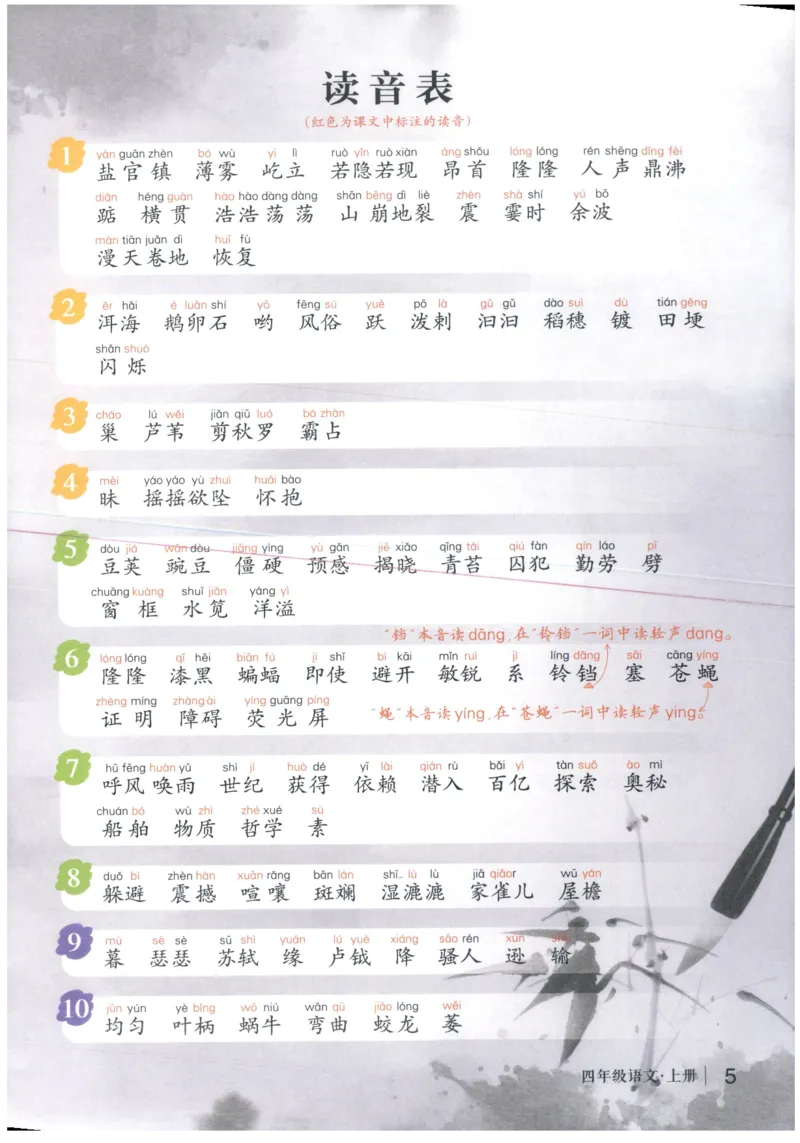 读音表
(红色为课文中标注的读音)
1
yán guān zhèn bó wù yì lì ruò yǐn ruò xiàn áng shǒu lóng lóng rén shēng dǐng fèi
盐官镇 薄雾 屹立 若隐若现 昂首 隆隆 人声鼎沸
diàn héng guàn hào hào dàng dàng shān bēng dì liè zhèn shà shí yú bō
踮 横贯 浩浩荡荡 山崩地裂 震 霎时 余波
màn tiān juǎn dì huī fù
漫天卷地 恢复
2
ěr hǎi é luǎn shí yō fēng sú yuè pō là gǔ gǔ dào suì dù tián gěng
洱海 鹅卵石 哟 风俗 跃 泼剌 汩汩 稻穗 镀 田埂
shǎn shuò
闪烁
3
cháo lú wěi jiǎn qiū luó bà zhàn
巢 芦苇 剪秋罗 霸占
4
mèi yáo yáo yù zhuì huái bào
昧 摇摇欲坠 怀抱
5
dòu jiá wān dòu jiāng yìng yù gǎn jiē xiǎo qīng tái qiú fàn qín láo pī
豆荚 豌豆 僵硬 预感 揭晓 青苔 囚犯 勤劳 劈
chuāng kuàng shuǐ jiǎn yáng yì
窗框 水笕 洋溢
“铛”本音读dāng,在“铃铛”一词中读轻声dang。
6
lóng lóng qī hēi biān fú jí shǐ bì kāi mǐn ruì jì líng dāng sāi cāng yíng
隆隆 漆黑 蝙蝠 即使 避开 敏锐 系 铃铛 塞 苍蝇
zhèng míng zhàng ài yíng guāng píng
证明 障碍 荧光屏
“蝇”本音读yíng,在“苍蝇”一词中读轻声ying。
7
hū fēng huàn yǔ shì jì huò dé yī lài qián rù bǎi yì tàn suǒ ào mì
呼风唤雨 世纪 获得 依赖 潜入 百亿 探索 奥秘
chuán bó wù zhì zhé xué sù
船舶 物质 哲学 素
8
duǒ bì zhèn hàn xuān rǎng bān lán shī lù lù jiā qiǎor wū yán
躲避 震撼 喧嚷 斑斓 湿漉漉 家雀儿 屋檐
9
mù sè sè sū shì yuán lú yuè xiáng sāo rén xùn shū
暮 瑟瑟 苏轼 缘 卢钺 降 骚人 逊 输
10
jūn yún yè bǐng wō niú wān qū jiāo lóng wěi
均匀 叶柄 蜗牛 弯曲 蛟龙 萎
四年级语文·上册 5